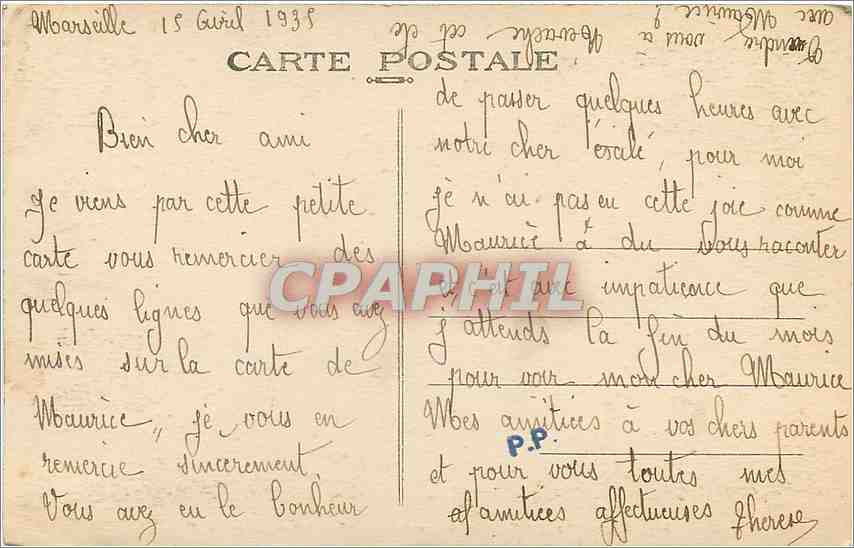 Marseille 15 Avril 1935
CARTE POSTALE
Bien cher ami
Je viens par cette petite
carte vous remercier des
quelques lignes que vous avez
mises sur la carte de
Maurice, je vous en
remercie sincerement.
Vous avez eu le bonheur
de passer quelques heures avec
notre cher éxilé, pour moi
je n'ai pas eu cette joie comme
Maurice à du vous raconter
et c'est avec impatience que
j'attends la fin du mois
pour voir mon cher Maurice
Mes amitiées à vos chers parents
et pour vous toutes mes
amitiées affectueuses Thérèse
P.P.
vous à Névache cet été
avec Maurice ?
CPAPHIL